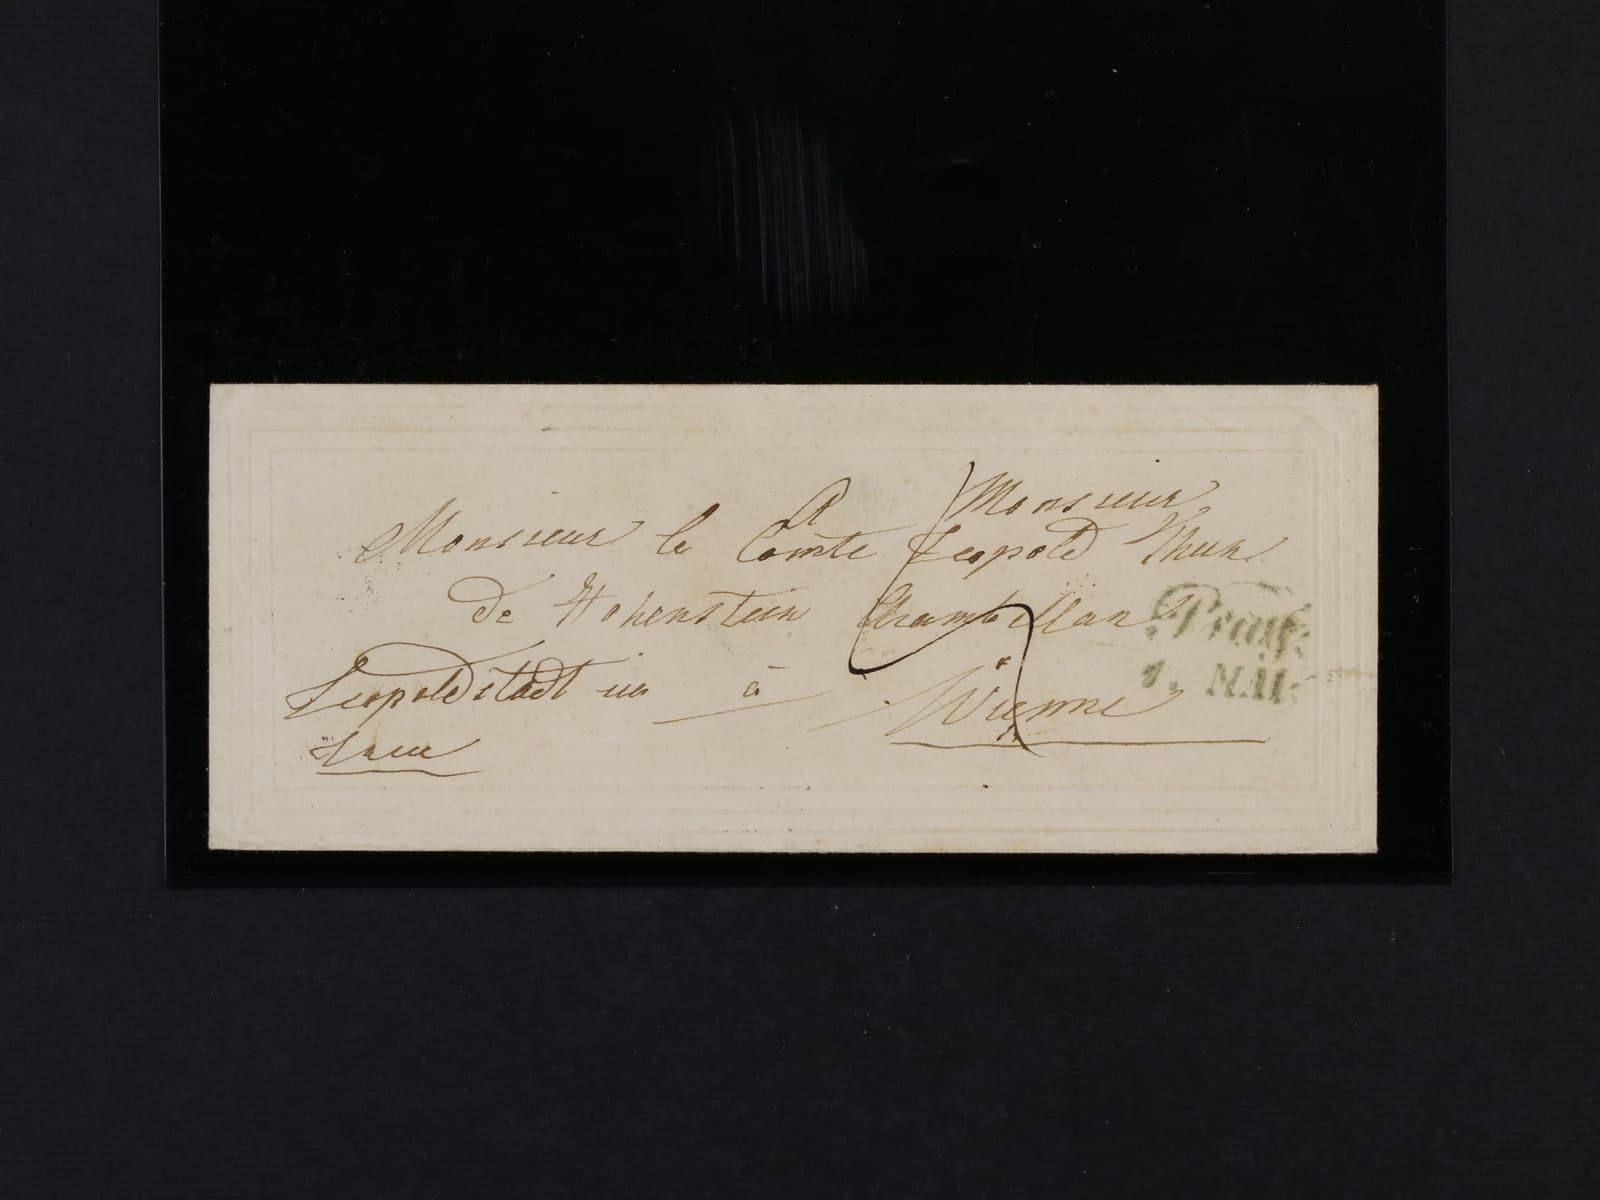 A Monsieur
Monsieur le Comte Leopold Thun
de Hohenstein Chambellan
Leopoldstadt im à Vienne
Prag.
7. MAI.